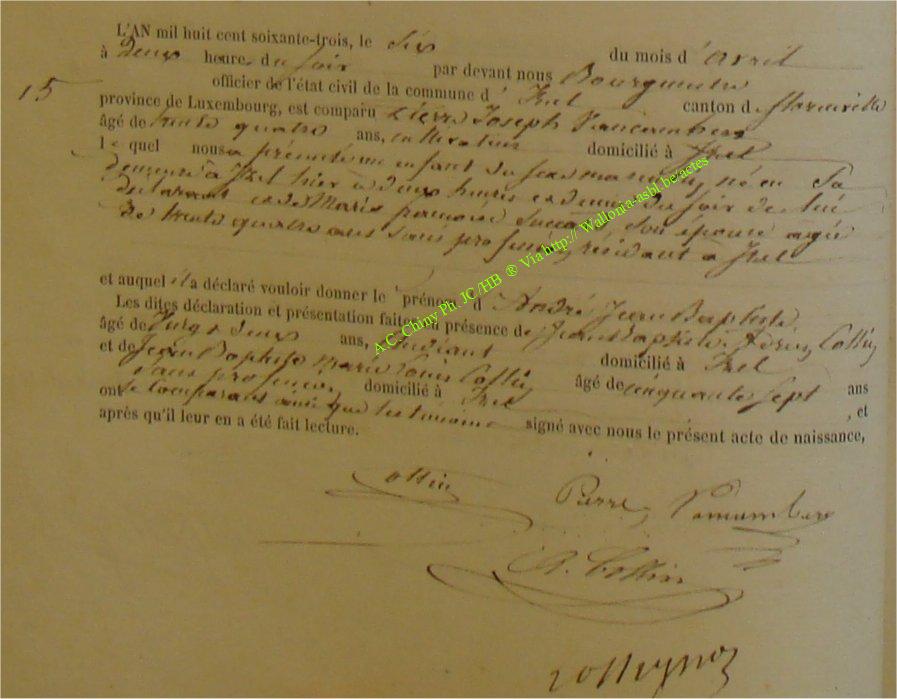 L'AN mil huit cent soixante-trois, le Six du mois d'avril
à Deux heures du soir par devant nous Bourgmestre
officier de l'état civil de la commune d' Izel canton de
15
province de Luxembourg, est comparu Pierre Joseph
âgé de trente quatre ans, cultivateur domicilié à Izel
le quel nous a présenté un enfant du sexe masculin, né en Sa
demeure à Izel hier à deux heures et demie du soir de lui
déclarant et de Marie françoise son épouse agée
de trente quatre ans sans profession, résidant à Izel
et auquel il a déclaré vouloir donner le prénom d' André Jean Baptiste.
Les dites déclaration et présentation faites en présence de Jean Baptiste Collin
âgé de vingt Deux ans, Etudiant domicilié à Izel
et de Jean Baptiste Marie Louis Collin âgé de cinquante Sept ans
Sans profession, domicilié à Izel , et
ont le Comparant ainsi que les témoins signé avec nous le présent acte de naissance,
après qu'il leur en a été fait lecture.
Collin Pierre
A. Collin
A.C. Chiny Ph. JC/HB ® Via http:// Wallonia-asbl.be/actes